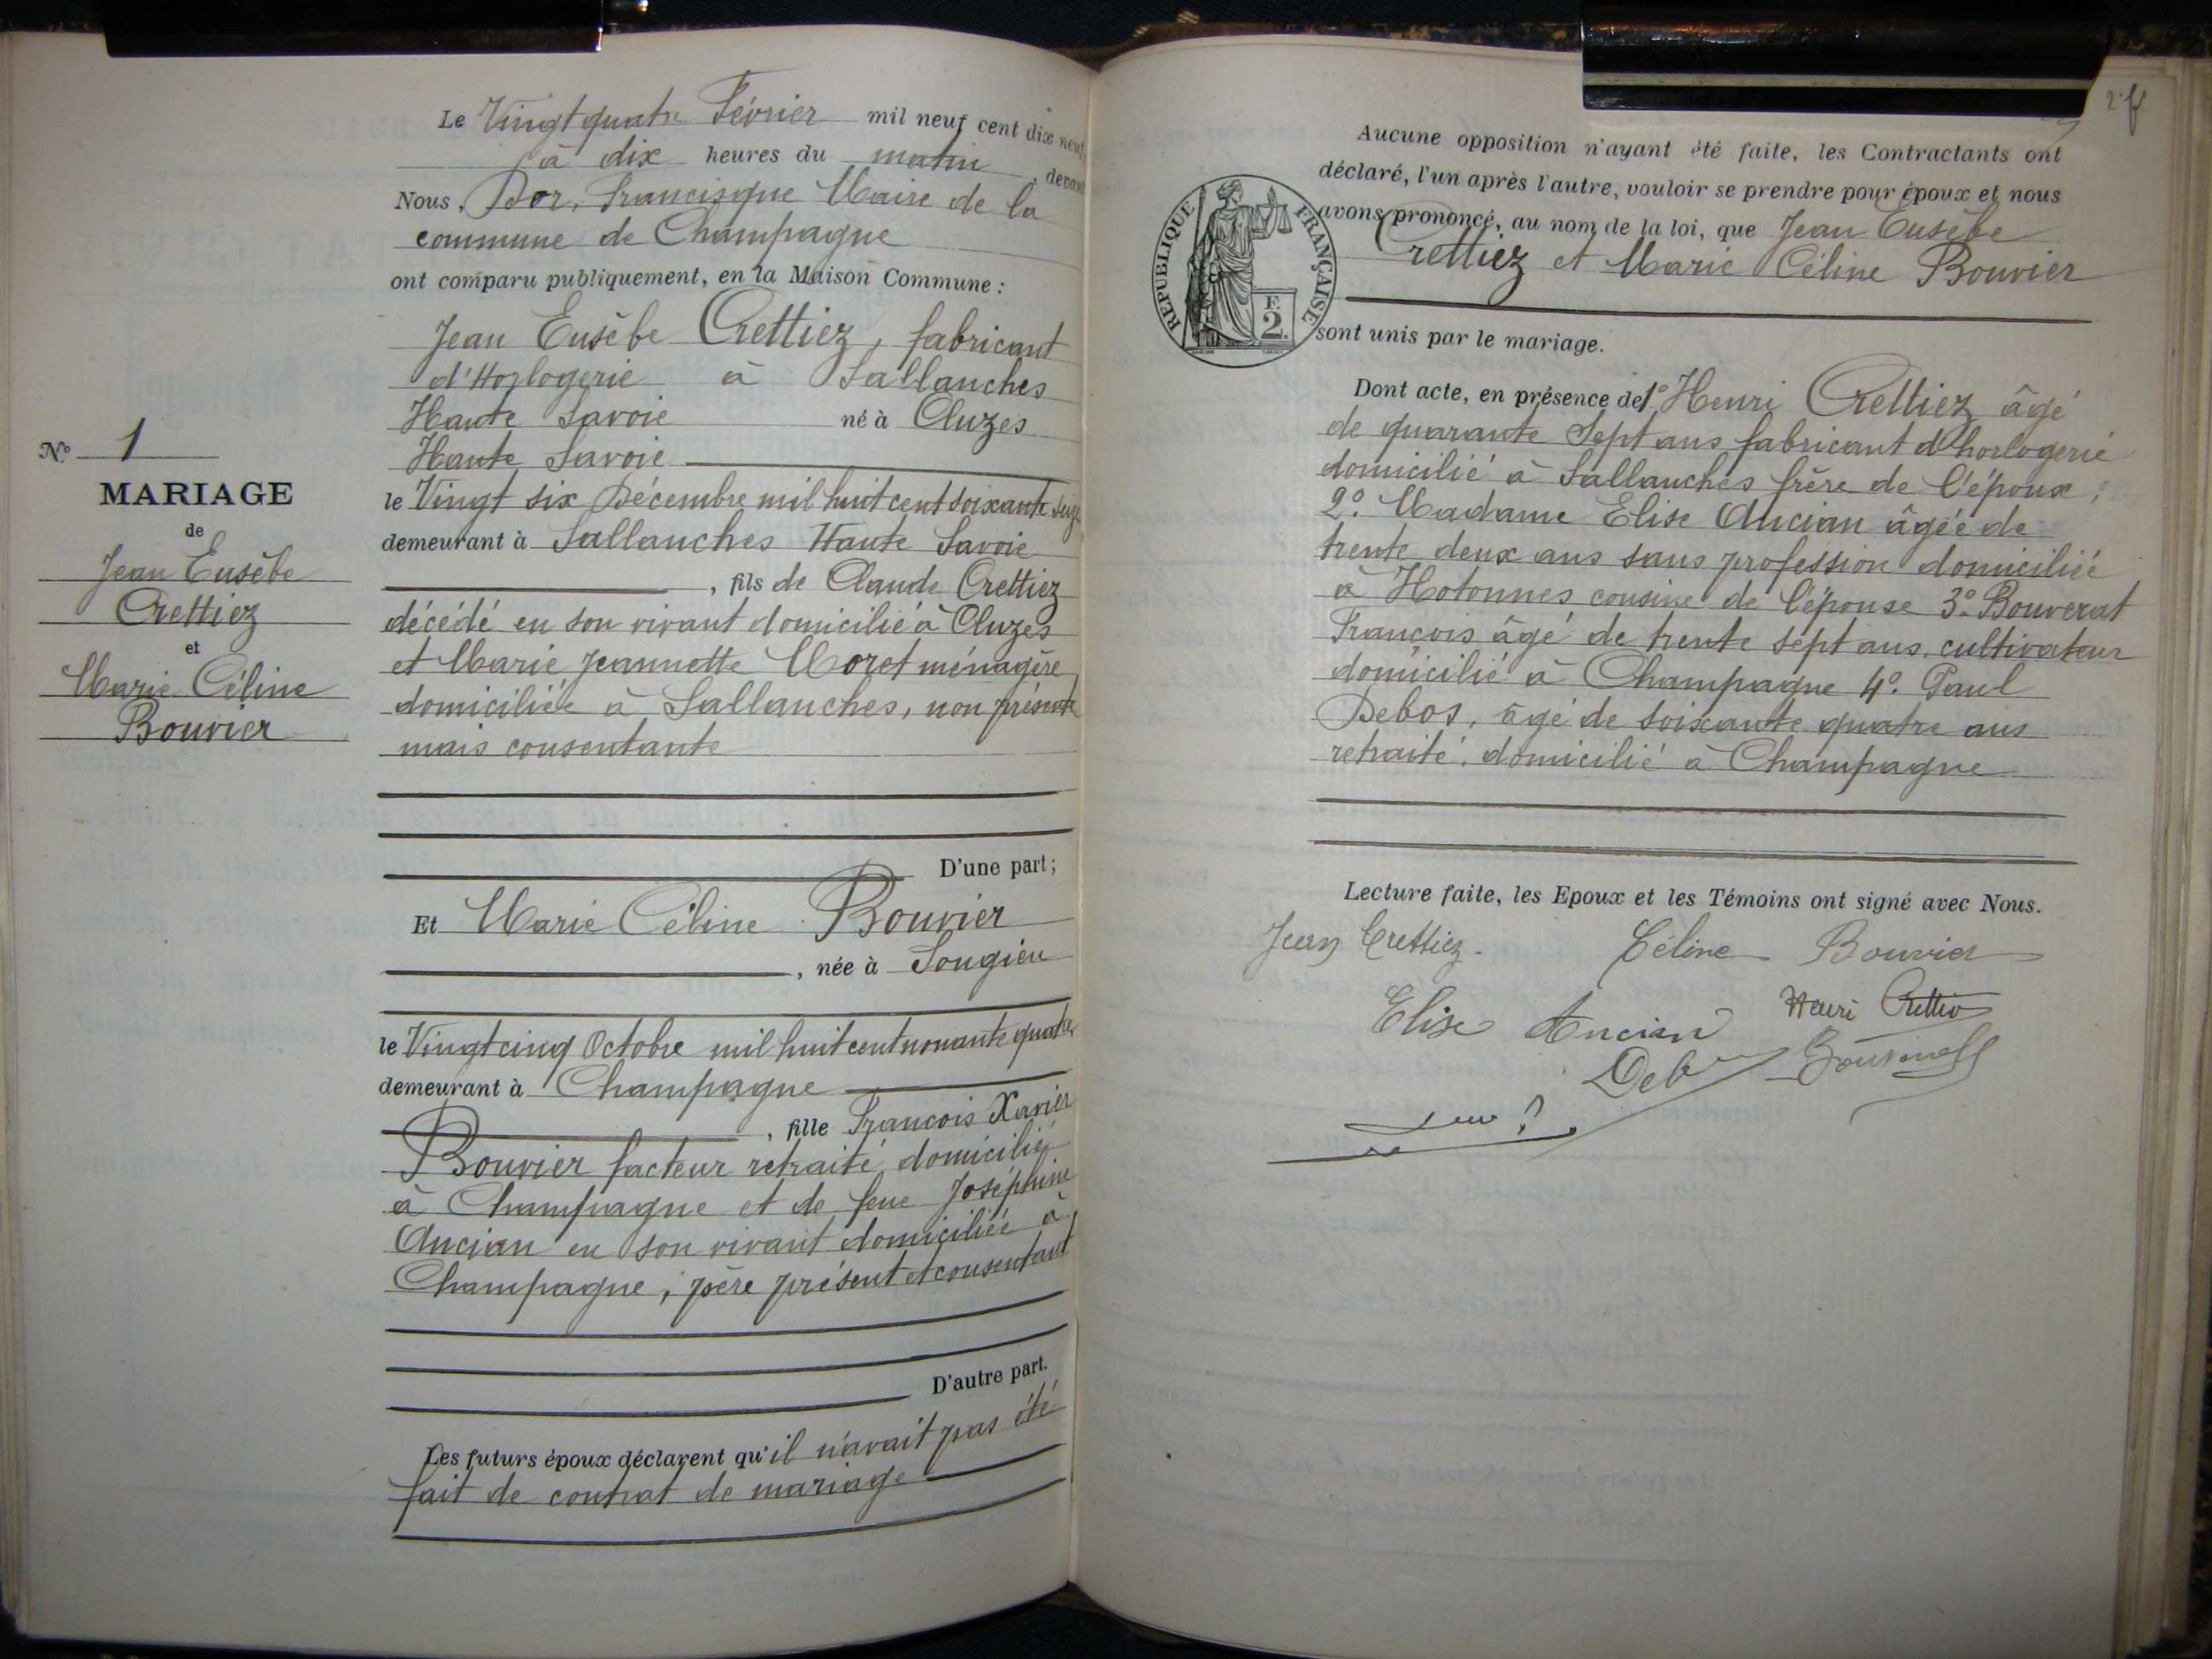 Le Vingt quatre Février mil neuf cent dix neuf,
à dix heures du matin, devant
Nous, Dor, Francisque Maire de la
commune de Champagne
ont comparu publiquement, en la Maison Commune :
Jean Eusèbe Crettiez, fabricant
d'Horlogerie à Sallanches
Haute Savoie né à Cluzes
Haute Savoie
le Vingt six Décembre mil huit cent soixante seize
demeurant à Sallanches Haute Savoie
, fils de Claude Crettiez
décédé en son vivant domicilié à Cluzes
et Marie Jeannette Moret ménagère
domiciliée à Sallanches, non présente
mais consentante
D'une part ;
Et Marie Céline Bouvier
, née à Songieu
le Vingt cinq Octobre mil huit cent nonante quatre
demeurant à Champagne
, fille François Xavier
Bouvier facteur retraité, domicilié
à Champagne et de feue Joséphine
Ancian en son vivant domiciliée à
Champagne, père présent et consentant
D'autre part.
Les futurs époux déclarent qu'il n'avait pas été
fait de contrat de mariage
N° 1
MARIAGE
de
Jean Eusèbe
Crettiez
et
Marie Céline
Bouvier
Aucune opposition n'ayant été faite, les Contractants ont
déclaré, l'un après l'autre, vouloir se prendre pour époux et nous
avons prononcé, au nom de la loi, que Jean Eusèbe
Crettiez et Marie Céline Bouvier
sont unis par le mariage.
RÉPUBLIQUE FRANÇAISE
F.
2.
Dont acte, en présence de 1° Henri Crettiez âgé
de quarante sept ans fabricant d'horlogerie
domicilié à Sallanches frère de l'époux ;
2° Madame Elise Ancian âgée de
trente deux ans sans profession domiciliée
à Hotonnes cousine de l'épouse 3° Bouverat
François âgé de trente sept ans, cultivateur
domicilié à Champagne 4° Paul
Debos, âgé de soixante quatre ans
retraité, domicilié à Champagne
Lecture faite, les Epoux et les Témoins ont signé avec Nous.
Jean Crettiez. Céline Bouvier
Elise Ancian Henri Crettiez